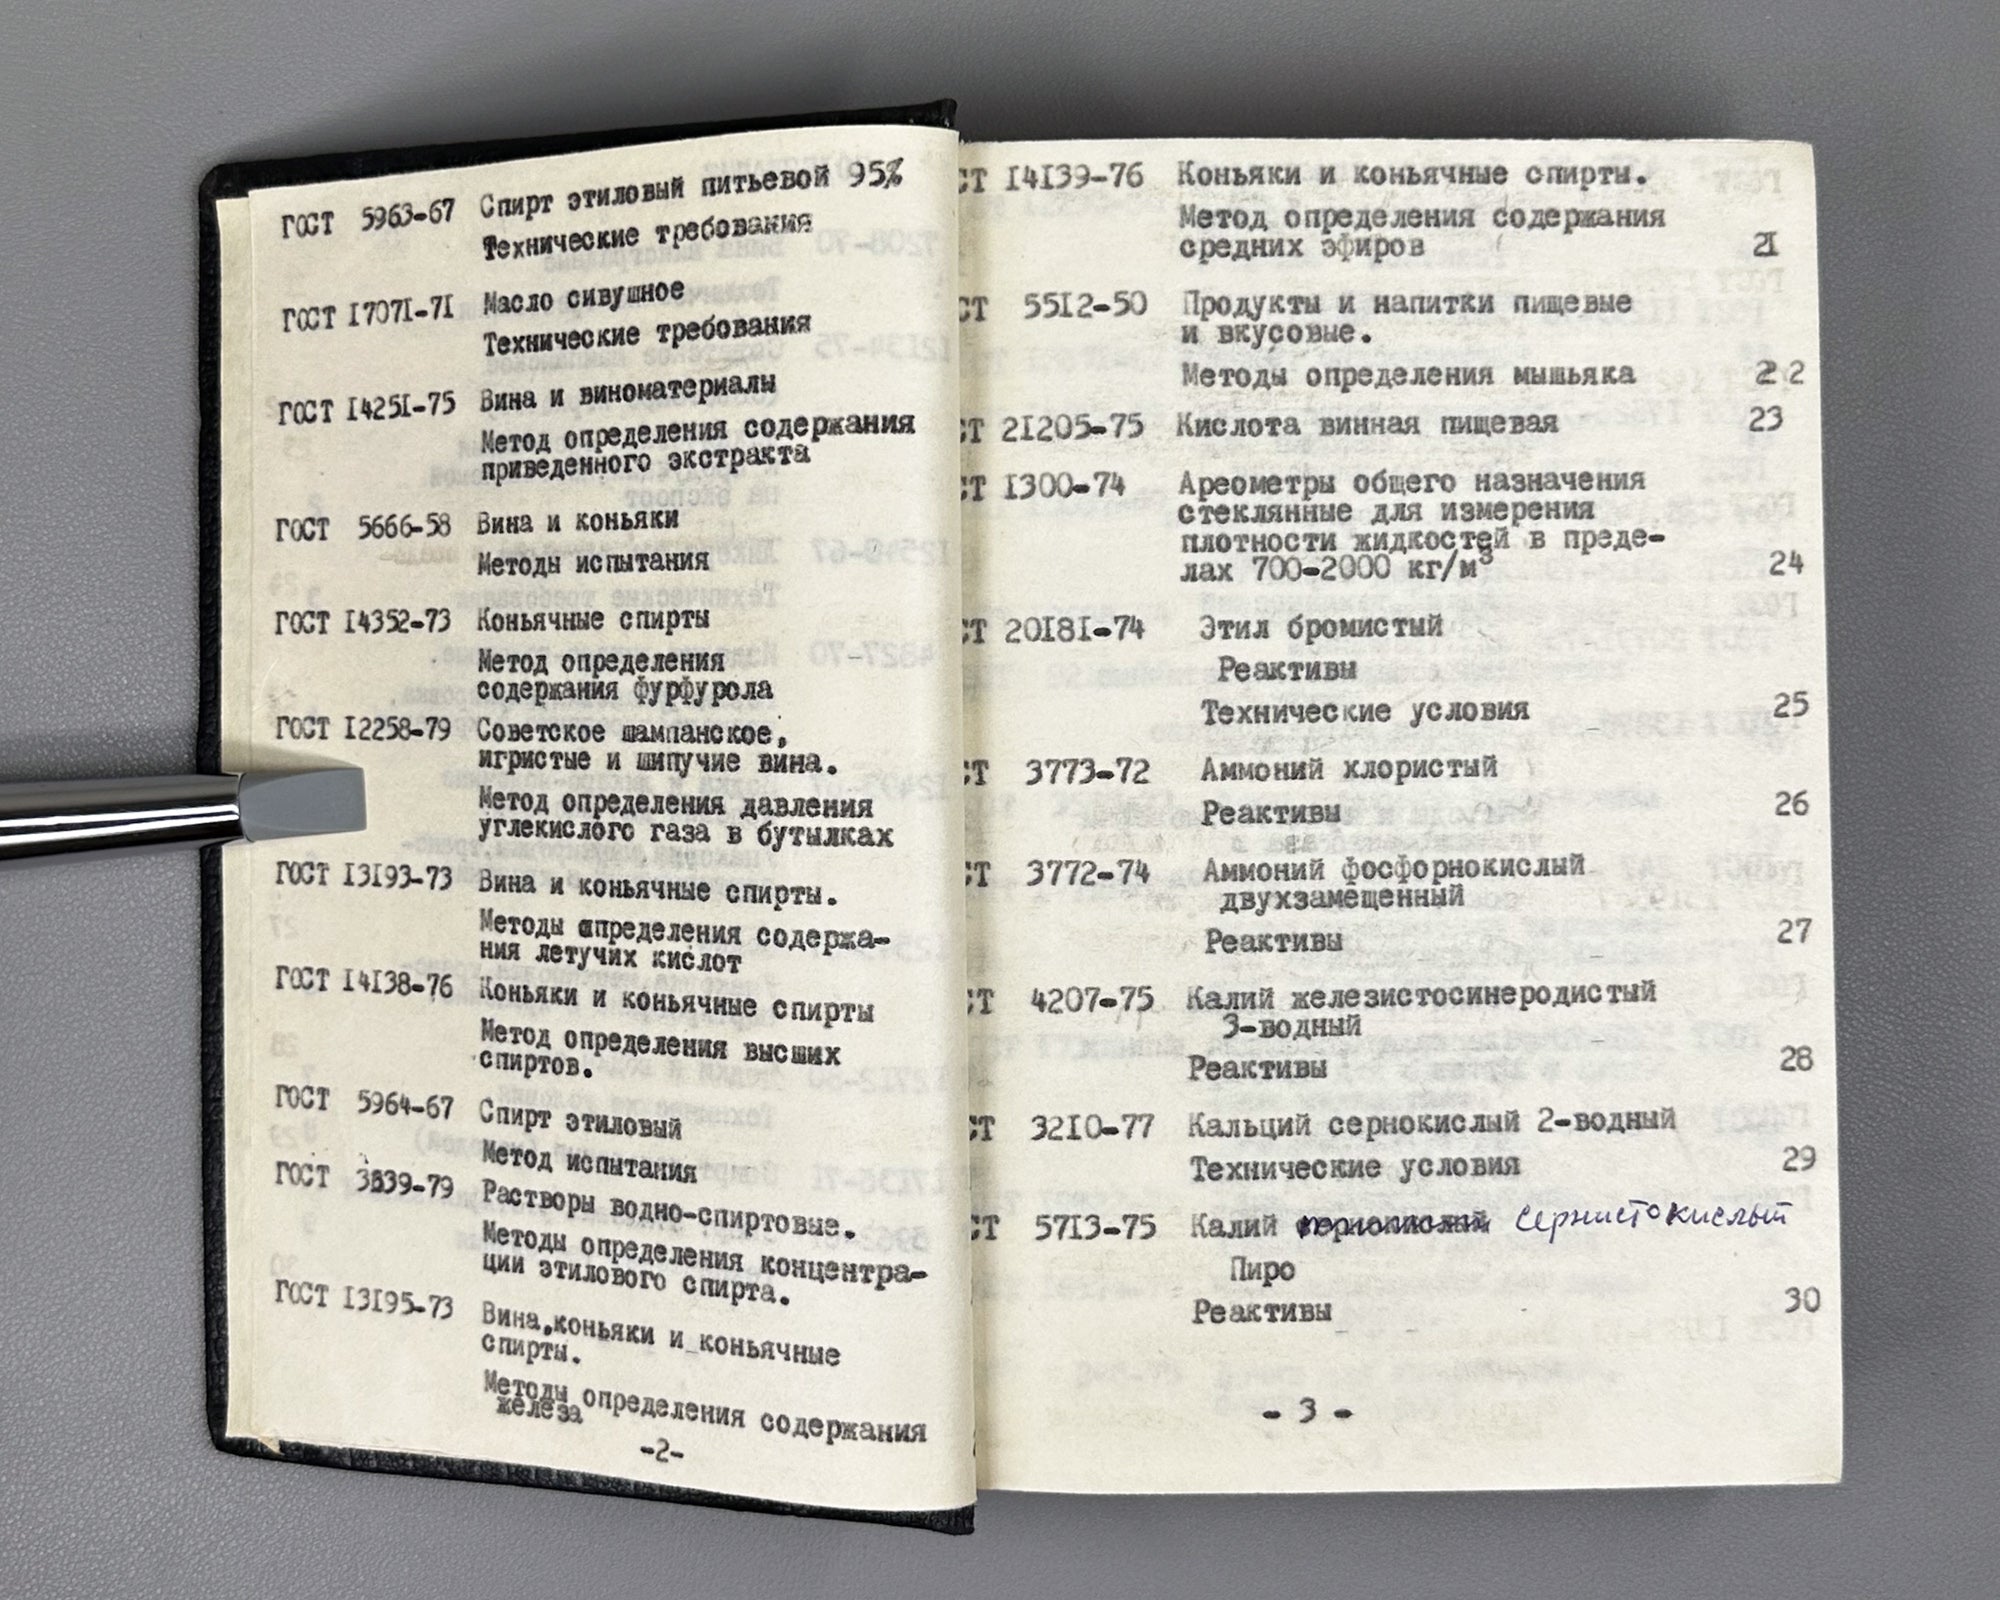 ГОСТ 5963-67 Спирт этиловый питьевой 95%
Технические требования
ГОСТ 17071-71 Масло сивушное
Технические требования
ГОСТ 14251-75 Вина и виноматериалы
Метод определения содержания
приведенного экстракта
ГОСТ 5666-58 Вина и коньяки
Методы испытания
ГОСТ 14352-73 Коньячные спирты
Метод определения
содержания фурфурола
ГОСТ 12258-79 Советское шампанское,
игристые и шипучие вина.
Метод определения давления
углекислого газа в бутылках
ГОСТ 13193-73 Вина и коньячные спирты.
Методы определения содержа-
ния летучих кислот
ГОСТ 14138-76 Коньяки и коньячные спирты
Метод определения высших
спиртов.
ГОСТ 5964-67 Спирт этиловый
Метод испытания
ГОСТ 3639-79 Растворы водно-спиртовые.
Методы определения концентра-
ции этилового спирта.
ГОСТ 13195-73 Вина, коньяки и коньячные
спирты.
Методы определения содержания
железа
-2-
СТ 14139-76 Коньяки и коньячные спирты.
Метод определения содержания
средних эфиров 21
СТ 5512-50 Продукты и напитки пищевые
и вкусовые.
Методы определения мышьяка 22
СТ 21205-75 Кислота винная пищевая 23
СТ 1300-74 Ареометры общего назначения
стеклянные для измерения
плотности жидкостей в преде-
лах 700-2000 кг/м³ 24
СТ 20181-74 Этил бромистый
Реактивы
Технические условия 25
СТ 3773-72 Аммоний хлористый
Реактивы 26
СТ 3772-74 Аммоний фосфорнокислый
двухзамещенный
Реактивы 27
СТ 4207-75 Калий железистосинеродистый
3-водный
Реактивы 28
СТ 3210-77 Кальций сернокислый 2-водный
Технические условия 29
СТ 5713-75 Калий сернокислый сернистокислый
Пиро
Реактивы 30
- 3 -